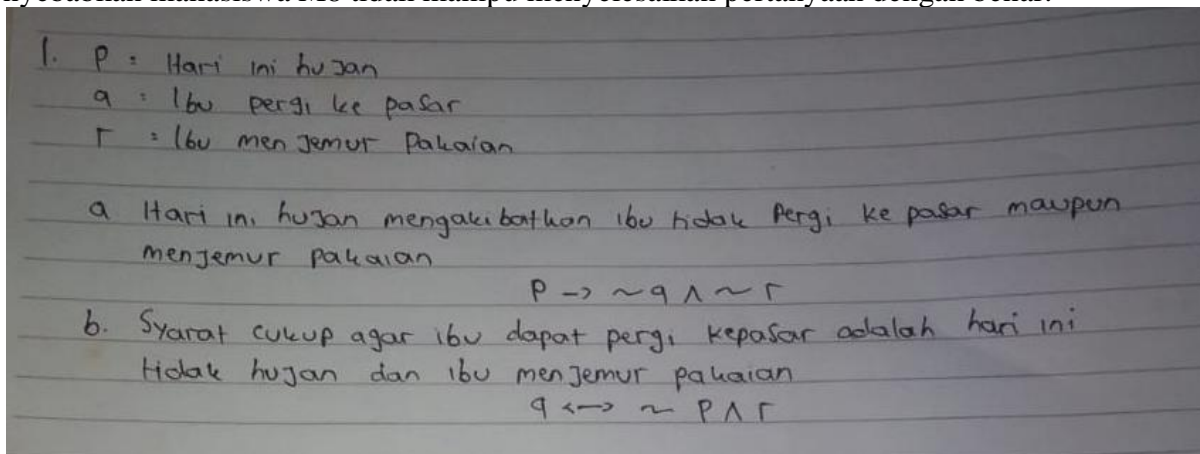 1. P : Hari ini hujan
q : Ibu pergi ke pasar
r : Ibu menjemur Pakaian
a Hari ini hujan mengakibatkan ibu tidak Pergi ke pasar maupun
menjemur pakaian
P -> ~q ∧ ~r
b. Syarat cukup agar ibu dapat pergi kepasar adalah hari ini
tidak hujan dan ibu menjemur pakaian
q <-> ~ P ∧ r